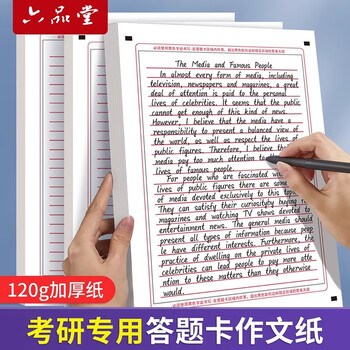 六品堂
The Media and Famous People
In almost every form of media, including
television, newspapers and magazines, a great
deal of attention is paid to the personal
lives of celebrities. It seems that the public
cannot get enough of this kind of news.
However, I believe that the media have a
responsibility to present a balanced view of
the world, as well as respect the lives of
public figures. Therefore, I believe the
media pay too much attention to
lives of famous people.
For people who are fascinated
lives of public figures there are some
of media devoted exclusively to this topic
They can satisfy their curiosity buying
magazines and watching TV shows devoted to
entertainment news. The general media should
present all types of information because peop
le have different interests. Furthermore, the
practice of dwelling on the private lives of
celebrities can lead people to pay more atte
ntion to these matters than they otherwise
would.
120g加厚纸
考研专用答题卡作文纸